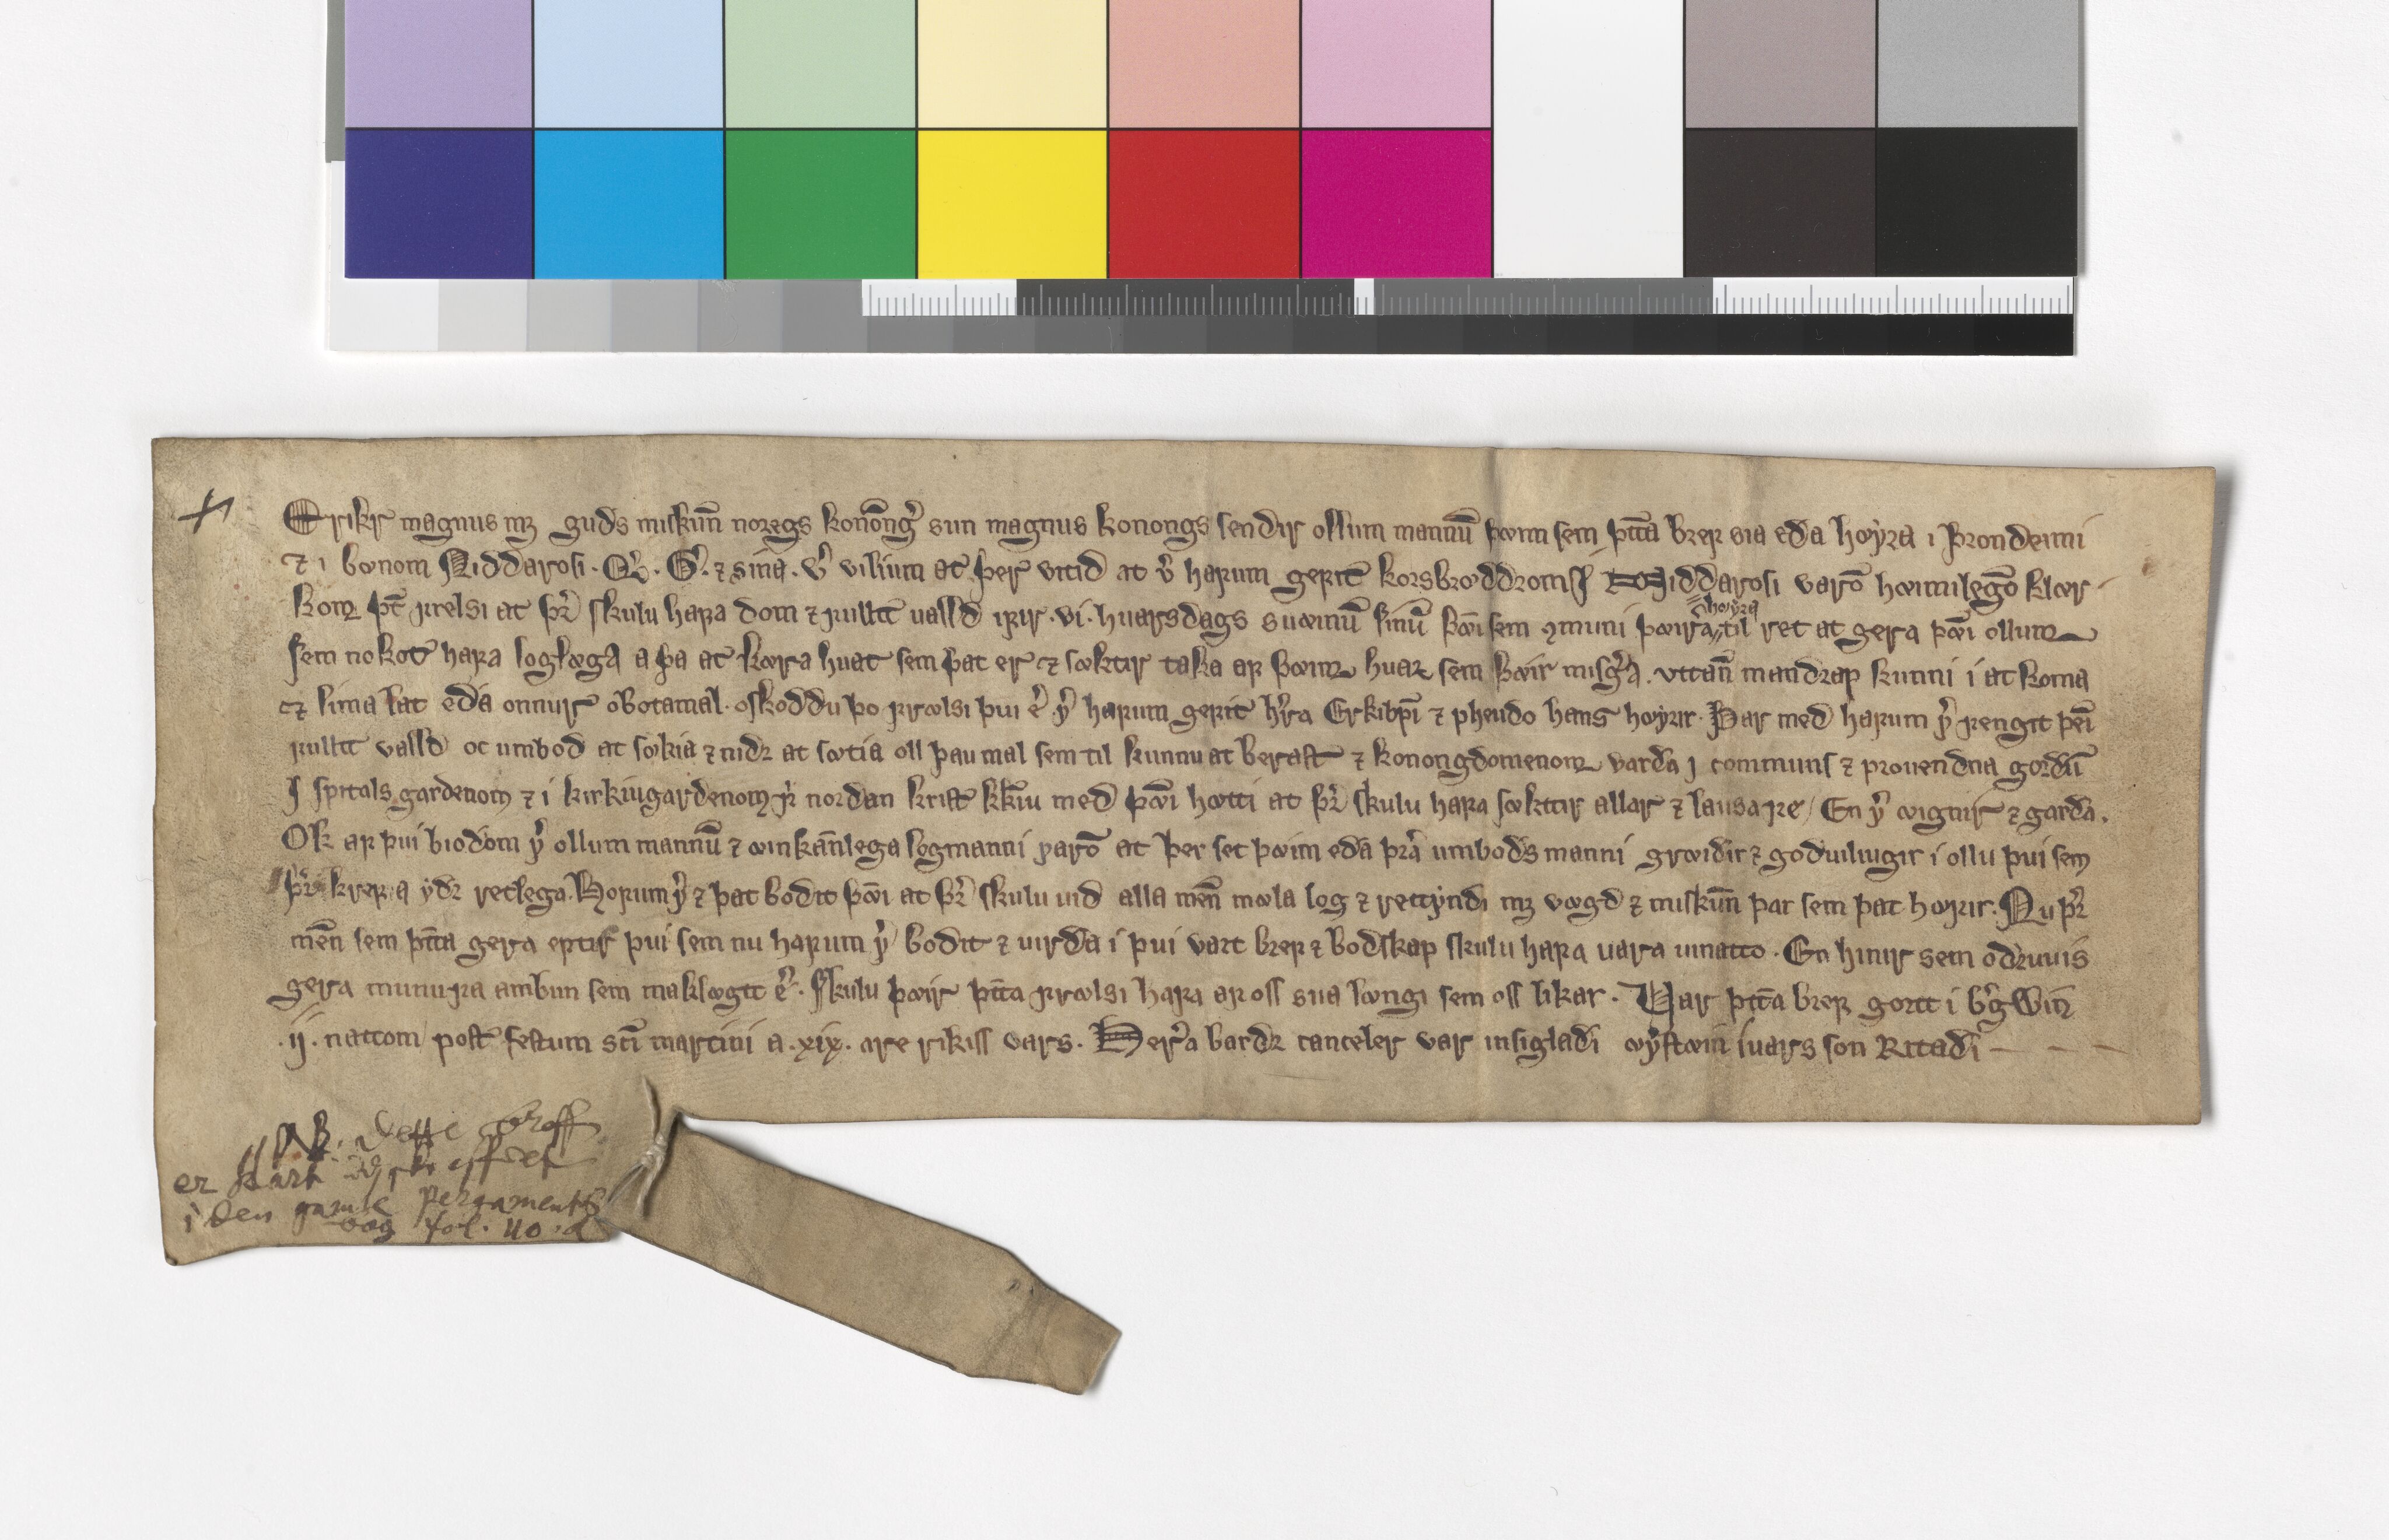 Erikr magnus mꝫ guds miskun̅ noregs konong̅ſ sun magnus konongs sendir ollum mannu̅ þæim sem þt̅ta bref sia eda høyra i Þrondeimi
⁊ i bønom Niddarosi. Q̅. G̅. ⁊ sina. v̅ vilium at þer vitid at v̅ hafum gefit korsbrøddrom J Niddarosi varo̅ hæimilego̅ klær
kom þt̅ frelsi at þr̅ skulu hafa dom ⁊ fullt valld ifir .vi. huarsdags suæinu̅ sinu̅ þæi sem þæira høyra til ret at gera þæi ollum
sem nokot hafa loglæga a þa at kæra huat sem þat er ⁊ sæktir taka af þæim huar sem þæir misg̅a. vttan̅ mandrap kunni i at koma
⁊ limalat eda onnur obotamal. oskoddu þo frælsi þui e̅ v̅ hafum gefit h̅ra Erkibp̅i ⁊ pheudo hans høyrir. Þar med hafum v̅ fengit þei̅
fullt valld oc umbod at sækia ⁊ nidr at sætia oll þau mal sem til kunnu at beraſt ⁊ konongdomenom varda j communs ⁊ prouendna gordu̅
J spitals gardenom ⁊ i kirkiugardenom f̅ nordan kriſt kk̅iu med þæi hætti at þr̅ skulu hafa sæktir allar ⁊ lausa fe / En v̅ æignir ⁊ garda.
Ok af þui biodom v̅ ollum mannu̅ ⁊ æinkan̅lega logmanni varo̅ at þer set þæim eda þr̅a umbods manni græidir ⁊ goduiliugir i ollu þui sem
þr̅ kref,a ydr retlega. Hofum v̅ ⁊ þat bodit þæi at þr̅ skulu uid alla men̅ mæla log ⁊ rettyndi mꝫ vægd ⁊ miskun̅ þar sem þat høyrir. Nu þr̅
men̅ sem þt̅ta gera eftir þui sem nu hafum v̅ bodit ⁊ uirda i þui vart bref ⁊ bodskap skulu hafa uara uinatto. En hinir sem odruuis
gera munu fa ambun sem maklægt e̅. Skulu þæir þt̅ta frælsi hafa af oss sua længi sem oss likar. Var þt̅ta bref gort i b̅gwin
.ij. nattom post festum sc̅i martini a .xix. are rikiss vars. Her̅a bardr canceler var insigladi æystæin iuars son Ritadi
NB. dette breff
er
i den gamle pergaments
bog fol. 40. a